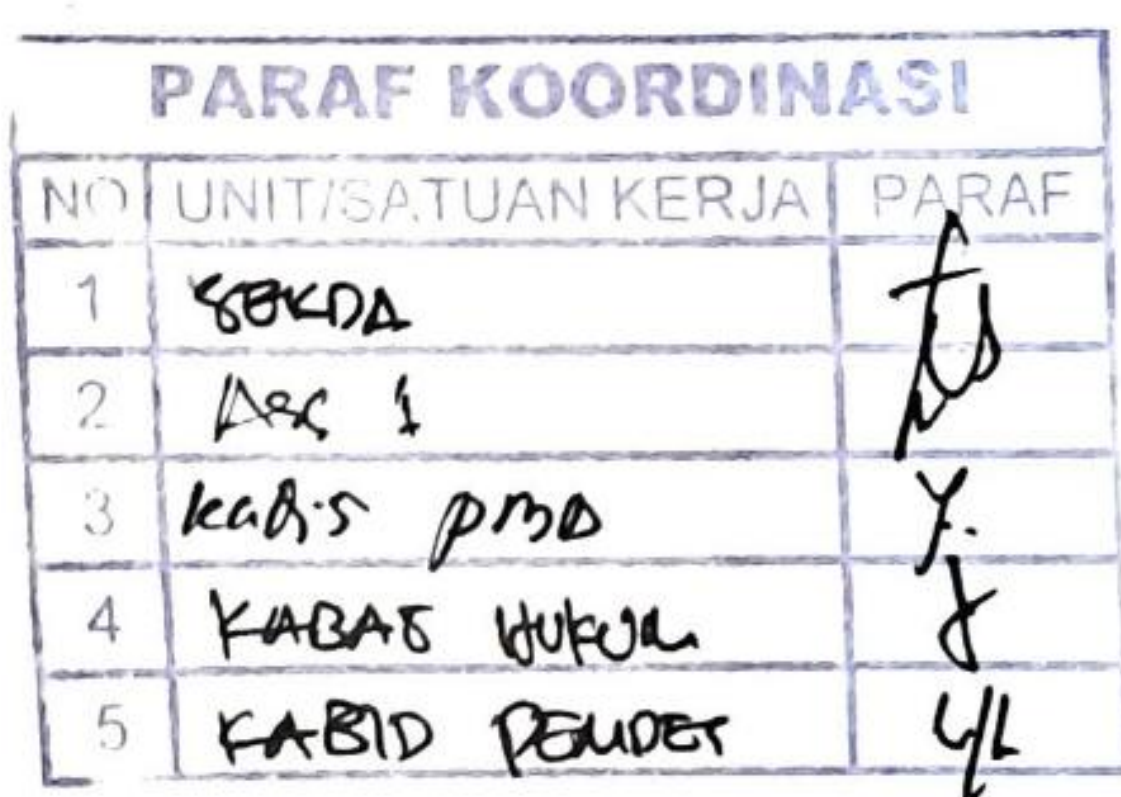 PARAF KOORDINASI
NO UNIT/SATUAN KERJA PARAF
1 SEKDA
2 Ass 1
3 Kadis PMD
4 KABAG HUKUM
5 KABID PEMDES